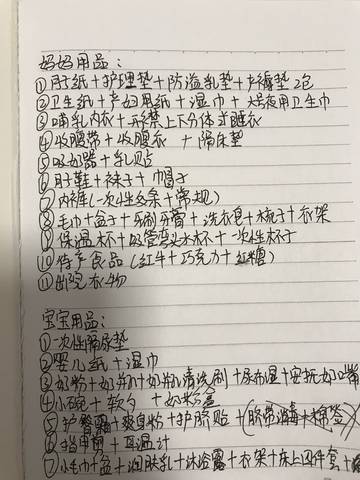 妈妈用品：
①月子纸+护理垫+防溢乳垫+产褥垫2包
②卫生纸+产妇用纸+湿巾+大号夜用卫生巾
③哺乳内衣+形禁上下分体式睡衣
④收腹带+收腹衣+隔尿垫
⑤吸奶器+乳贴
⑥月子鞋+袜子+帽子
⑦内裤(一次性多条+常规)
⑧毛巾+盆子+牙刷牙膏+洗衣皂+梳子+衣架
⑨保温杯+吸管弯头水杯+一次性杯子
⑩待产食品(红牛+巧克力+红糖)
⑪出院衣物
宝宝用品：
①一次性隔尿垫
②婴儿纸+湿巾
③奶粉+奶瓶+奶瓶清洗刷+尿布湿+安抚奶嘴
④小碗+软勺+奶粉盒
⑤护臀霜+爽身粉+护脐贴+(脐带消毒+棉签)
⑥指甲剪+耳温计
⑦小毛巾+盆+润肤乳+沐浴露+衣架+床上四件套+